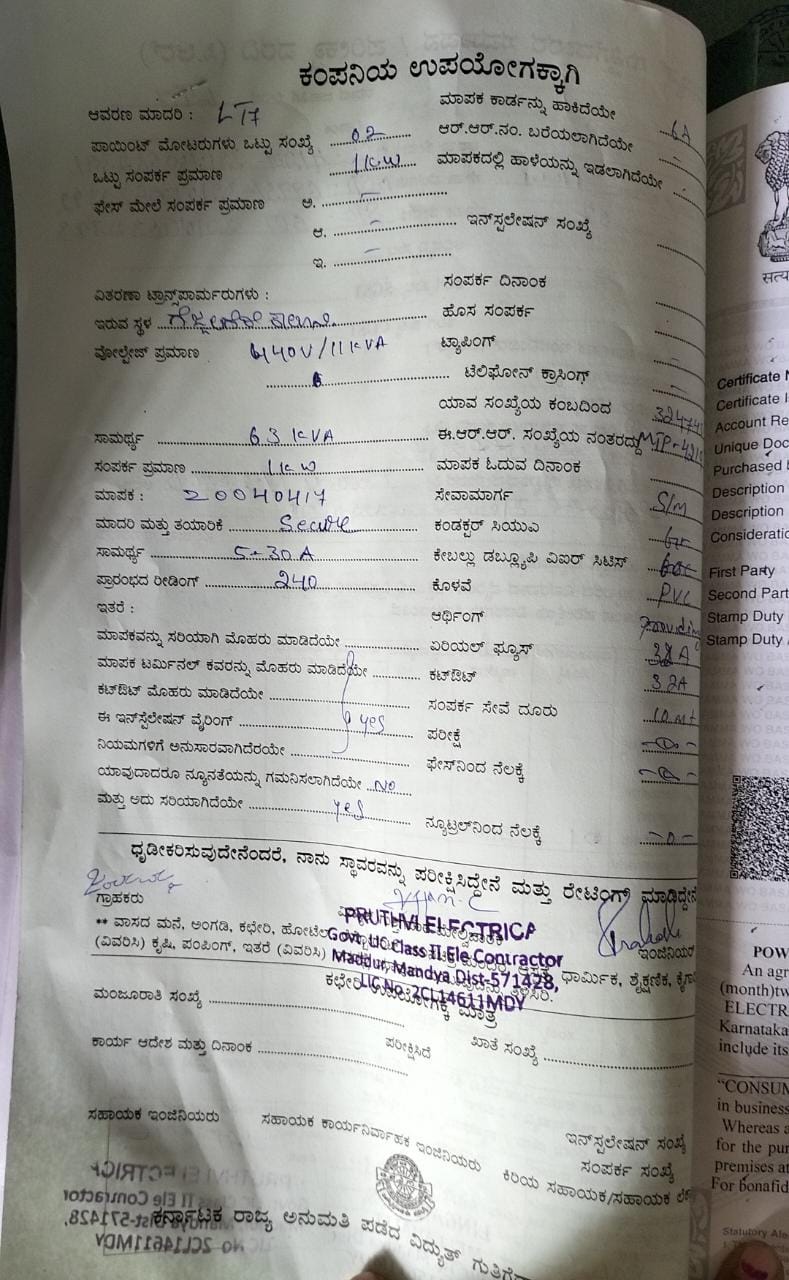 ಕಂಪನಿಯ ಉಪಯೋಗಕ್ಕಾಗಿ
ಆವರಣ ಮಾದರಿ : LT7
ಪಾಯಿಂಟ್ ಮೋಟರುಗಳು ಒಟ್ಟು ಸಂಖ್ಯೆ 02
ಒಟ್ಟು ಸಂಪರ್ಕ ಪ್ರಮಾಣ 1KW
ಫೇಸ್ ಮೇಲೆ ಸಂಪರ್ಕ ಪ್ರಮಾಣ ಅ. –
ಆ. –
ಇ. –
ವಿತರಣಾ ಟ್ರಾನ್ಸ್‌ಪಾರ್ಮರುಗಳು :
ಇರುವ ಸ್ಥಳ
ವೋಲ್ಟೇಜ್ ಪ್ರಮಾಣ 440V/11KVA
ಸಾಮರ್ಥ್ಯ 63 KVA
ಸಂಪರ್ಕ ಪ್ರಮಾಣ 1KW
ಮಾಪಕ : 20040417
ಮಾದರಿ ಮತ್ತು ತಯಾರಿಕೆ Secure
ಸಾಮರ್ಥ್ಯ 5-30A
ಪ್ರಾರಂಭದ ರೀಡಿಂಗ್ 240
ಇತರೆ :
ಮಾಪಕವನ್ನು ಸರಿಯಾಗಿ ಮೊಹರು ಮಾಡಿದೆಯೇ
ಮಾಪಕ ಟರ್ಮಿನಲ್ ಕವರನ್ನು ಮೊಹರು ಮಾಡಿದೆಯೇ
ಕಟ್‌ಔಟ್ ಮೊಹರು ಮಾಡಿದೆಯೇ
ಈ ಇನ್‌ಸ್ಟಲೇಷನ್ ವೈರಿಂಗ್ yes
ನಿಯಮಗಳಿಗೆ ಅನುಸಾರವಾಗಿದೆರಯೇ
ಯಾವುದಾದರೂ ನ್ಯೂನತೆಯನ್ನು ಗಮನಿಸಲಾಗಿದೆಯೇ No
ಮತ್ತು ಅದು ಸರಿಯಾಗಿದೆಯೇ yes
ಮಾಪಕ ಕಾರ್ಡನ್ನು ಹಾಕಿದೆಯೇ
ಆರ್.ಆರ್.ನಂ. ಬರೆಯಲಾಗಿದೆಯೇ
ಮಾಪಕದಲ್ಲಿ ಹಾಳೆಯನ್ನು ಇಡಲಾಗಿದೆಯೇ
ಇನ್‌ಸ್ಟಲೇಷನ್ ಸಂಖ್ಯೆ
ಸಂಪರ್ಕ ದಿನಾಂಕ
ಹೊಸ ಸಂಪರ್ಕ
ಟ್ಯಾಪಿಂಗ್
ಟೆಲಿಫೋನ್ ಕ್ರಾಸಿಂಗ್
ಯಾವ ಸಂಖ್ಯೆಯ ಕಂಬದಿಂದ
ಈ.ಆರ್.ಆರ್. ಸಂಖ್ಯೆಯ ನಂತರದ್ದು
ಮಾಪಕ ಓದುವ ದಿನಾಂಕ
ಸೇವಾಮಾರ್ಗ S/M
ಕಂಡಕ್ಟರ್ ಸಿಯುಎ
ಕೇಬಲ್ಲು ಡಬ್ಲ್ಯೂಪಿ ವಿಐರ್ ಸಿಟಿಸ್
ಕೊಳವೆ PVC
ಆರ್ಥಿಂಗ್
ಏರಿಯಲ್ ಫ್ಯೂಸ್ 32A
ಕಟ್‌ಔಟ್ 32A
ಸಂಪರ್ಕ ಸೇವೆ ದೂರು 10 mt
ಪರೀಕ್ಷೆ -0-
ಫೇಸ್‌ನಿಂದ ನೆಲಕ್ಕೆ -0-
ನ್ಯೂಟ್ರಲ್‌ನಿಂದ ನೆಲಕ್ಕೆ -0-
ಧೃಡೀಕರಿಸುವುದೇನೆಂದರೆ, ನಾನು ಸ್ಥಾವರವನ್ನು ಪರೀಕ್ಷಿಸಿದ್ದೇನೆ ಮತ್ತು ರೇಟಿಂಗ್ ಮಾಡಿದ್ದೇನೆ
ಗ್ರಾಹಕರು
ಇಂಜಿನಿಯರ್
PRUTHVI ELECTRICA
Govt. UC Class II Ele Contractor
Maddur, Mandya Dist-571428,
LIC No. 2CL14611MDY
** ವಾಸದ ಮನೆ, ಅಂಗಡಿ, ಕಛೇರಿ, ಹೋಟೆಲ್
(ವಿವರಿಸಿ) ಕೃಷಿ, ಪಂಪಿಂಗ್, ಇತರೆ (ವಿವರಿಸಿ) ಧಾರ್ಮಿಕ, ಶೈಕ್ಷಣಿಕ,
ಕಛೇರಿ ಉಪಯೋಗಕ್ಕೆ ಮಾತ್ರ
ಮಂಜೂರಾತಿ ಸಂಖ್ಯೆ
ಖಾತೆ ಸಂಖ್ಯೆ
ಕಾರ್ಯ ಆದೇಶ ಮತ್ತು ದಿನಾಂಕ
ಪರೀಕ್ಷಿಸಿದೆ
ಇನ್‌ಸ್ಟಲೇಷನ್ ಸಂಖ್ಯೆ
ಸಂಪರ್ಕ ಸಂಖ್ಯೆ
ಸಹಾಯಕ ಇಂಜಿನಿಯರು ಸಹಾಯಕ ಕಾರ್ಯನಿರ್ವಾಹಕ ಇಂಜಿನಿಯರು ಕಿರಿಯ ಸಹಾಯಕ/ಸಹಾಯಕ
ಕರ್ನಾಟಕ ರಾಜ್ಯ ಅನುಮತಿ ಪಡೆದ ವಿದ್ಯುತ್
Certificate
Certificate
Account Re
Unique Doc
Purchased
Description
Description
Consideratio
First Party
Second Part
Stamp Duty
Stamp Duty
POW
An agr
(month)tw
ELECTR
Karnataka
include its
"CONSUM
in business
Whereas a
for the pur
premises at
For bonafid
Statutory Ale